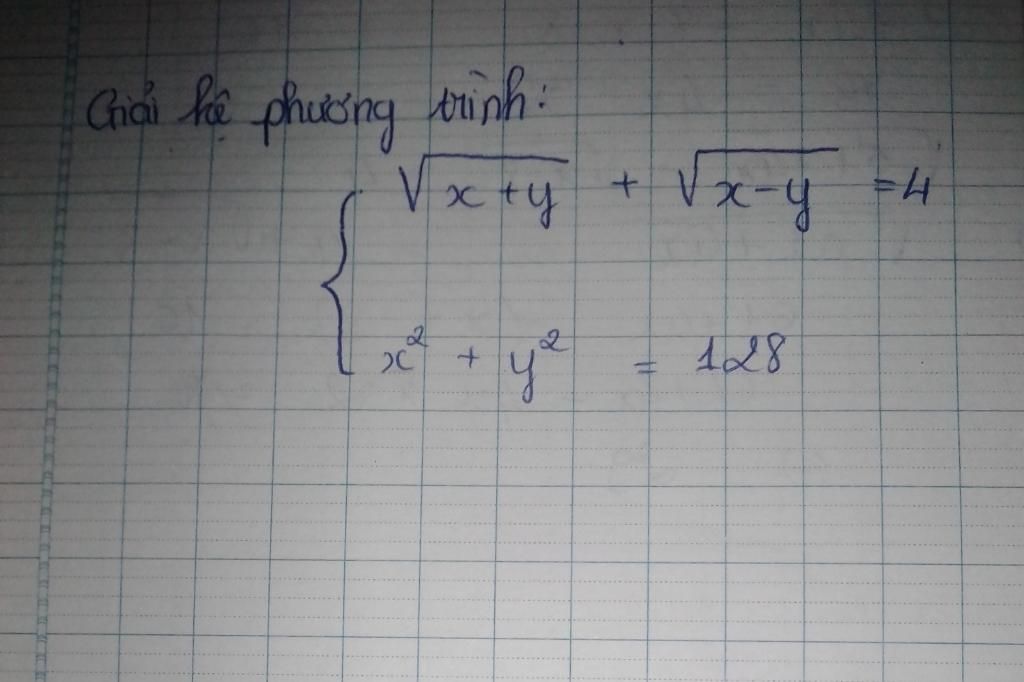 Giải hệ phương trình:
√(x+y) + √(x-y) = 4
x² + y² = 128